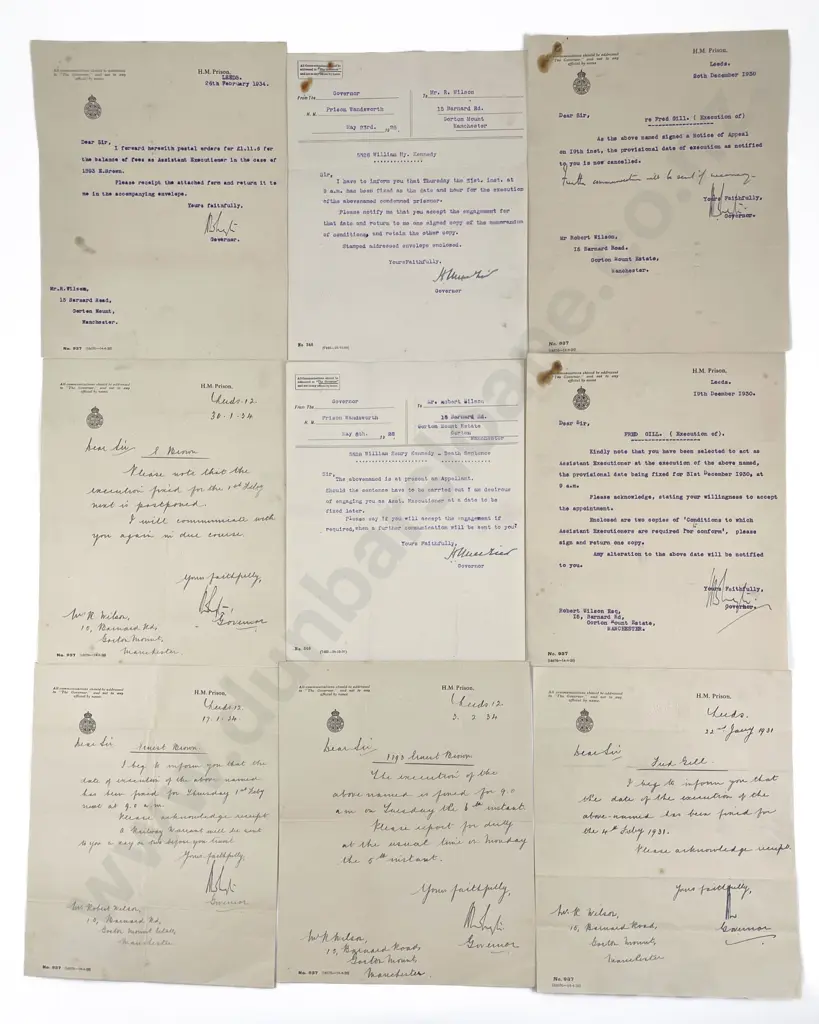 All communications should be addressed
to "The Governor," and not to any
official by name.
H.M. Prison,
LEEDS.
26th February 1934.
Dear Sir,
I forward herewith postal orders for £1.11.6 for
the balance of fees as Assistant Executioner in the case of
1393 E.Brown.
Please receipt the attached form and return it to
me in the accompanying envelope.
Yours faithfully,
Governor.
Mr.R.Wilson,
15 Barnard Road,
Gorton Mount,
Manchester.
No. 937
From The Governor
H.M. Prison Wandsworth
May 23rd.
To Mr. R. Wilson
15 Barnard Rd.
Gorton Mount
Manchester
William Hy. Kennedy
Sir,
I have to inform you that Thursday the 31st. inst. at
9 a.m. has been fixed as the date and hour for the execution
of the abovenamed condemned prisoner.
Please notify me that you accept the engagement for
that date and return to me one signed copy of the memorandum
of conditions, and retain the other copy.
Stamped addressed envelope enclosed.
Yours Faithfully.
Governor
No. 243
H.M. Prison,
Leeds.
20th December 1930
Dear Sir,
re Fred Gill. ( Execution of)
As the above named signed a Notice of Appeal
on 19th inst, the provisional date of execution as notified
to you is now cancelled.
Further communication will be sent if necessary.
Yours Faithfully,
Governor.
Mr Robert Wilson,
15 Barnard Road.
Gorton Mount Estate,
Manchester.
No. 937
All communications should be addressed
to "The Governor," and not to any
official by name.
H.M. Prison,
Leeds 12
30.1.34
Dear Sir
E Brown
Please note that the
execution fixed for the 1st Feby
next is postponed.
I will communicate with
you again in due course.
Yours faithfully,
Governor
Mr R. Wilson,
15, Barnard Rd,
Gorton Mount,
Manchester
No. 937
From The Governor
H.M. Prison Wandsworth
May 8th.
To Mr. Robert Wilson
15 Barnard Rd.
Gorton Mount Estate
Gorton
Manchester
William Henry Kennedy - Death Sentence
Sir,
The abovenamed is at present an Appellant.
Should the sentence have to be carried out I am desirous
of engaging you as Asst. Executioner at a date to be
fixed later.
Please say if you will accept the engagement if
required, when a further communication will be sent to you.
Yours Faithfully,
Governor
H.M. Prison,
Leeds.
19th December 1930.
Dear Sir,
FRED GILL. ( Execution of).
Kindly note that you have been selected to act as
Assistant Executioner at the execution of the above named,
the provisional date being fixed for 31st December 1930, at
9 a.m.
Please acknowledge, stating your willingness to accept
the appointment.
Enclosed are two copies of 'Conditions to which
Assistant Executioners are required to conform', please
sign and return one copy.
Any alteration to the above date will be notified
to you.
Yours Faithfully,
Governor.
Robert Wilson Esq,
15, Barnard Rd,
Gorton Mount Estate,
MANCHESTER.
No. 937
All communications should be addressed
to "The Governor," and not to any
official by name.
H.M. Prison,
Leeds 12
17.1.34
Dear Sir
Ernest Brown.
I beg to inform you that the
date of execution of the above named
has been fixed for Thursday 1st Feby
next at 9.0 a.m.
Please acknowledge receipt
A Railway Warrant will be sent
to you a day or two before you travel.
Yours faithfully,
Governor
Mr Robert Wilson,
15, Barnard Rd,
Gorton Mount Estate,
Manchester
No. 937
All communications should be addressed
to "The Governor," and not to any
official by name.
H.M. Prison,
Leeds 12
3.2.34
Dear Sir
1393 Ernest Brown
The execution of the
above named is fixed for 9.0
am on Tuesday the 6th instant.
Please report for duty
at the usual time on Monday
the 5th instant.
Yours faithfully,
Governor
Mr R. Wilson,
15, Barnard Road,
Gorton Mount,
Manchester.
No. 937
All communications should be addressed
to "The Governor," and not to any
official by name.
H.M. Prison,
Leeds.
22nd Jany 1931
Dear Sir
Fred Gill.
I beg to inform you that
the date of the execution of the
above-named has been fixed for
the 4th Feby 1931.
Please acknowledge receipt.
Yours faithfully,
Governor
Mr R. Wilson,
15, Barnard Road,
Gorton Mount,
Manchester
No. 937